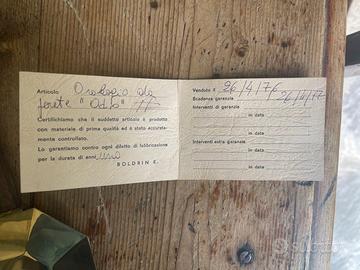 Articolo Orologio da
parete "Odo"
Certifichiamo che il suddetto articolo è prodotto
con materiale di prima qualità ed è stato accurata-
mente controllato.
Lo garantiamo contro ogni difetto di fabbricazione
per la durata di anni uno
BOLDRIN E.
Venduto il 26/4/76
Scadenza garanzia 26/4/77
Interventi di garanzia
in data
in data
in data
Interventi extra garanzia
in data
in data
in data
subito